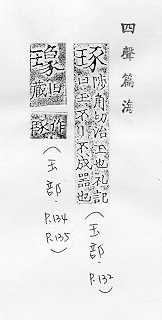 四聲篇海
琢陟角切治玉也礼記曰玉不不成器也
(玉部. P.132)
(玉部. P.134 P.135)